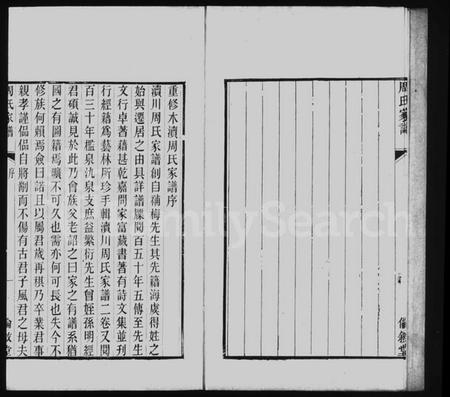 重修木瀆周氏家譜序
瀆川周氏家譜創自蒲梅先生其先籍海虞得姓之
始與遷居之由具詳譜牒閱百五十年五傳至先生
文行卓著藉甚乾嘉間家富藏書著有詩文集並刊
行經籍爲藝林所珍手輯瀆川周氏家譜二卷又閱
百三十年檻泉氿泉支庶益繁衍先生曾姪孫明經
君碩誠見於此乃會族父老詔之曰家之有譜系猶
國之有圖籍焉曠不可久也需亦何可長也失今不
修族何賴焉僉曰諾且以屬君歲再稘乃卒業君事
親孝謹偘偘自將剬而不傷有古君子風君之母夫
周氏家譜
序
一
倫敘堂
周氏家譜
倫敘堂
FamilySearch